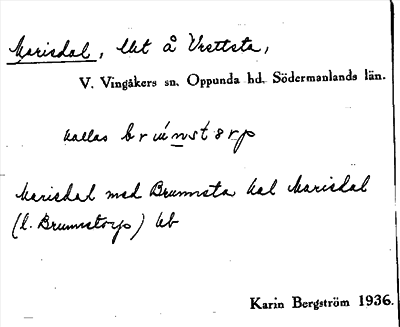 Marisdal, lht å Vrettsta,
V. Vingåkers sn. Oppunda hd. Södermanlands län.
kallas brúnstɔrp
Marisdal med Brunnsta kal Marisdal
(l. Brunnstorp) hb
Karin Bergström 1936.